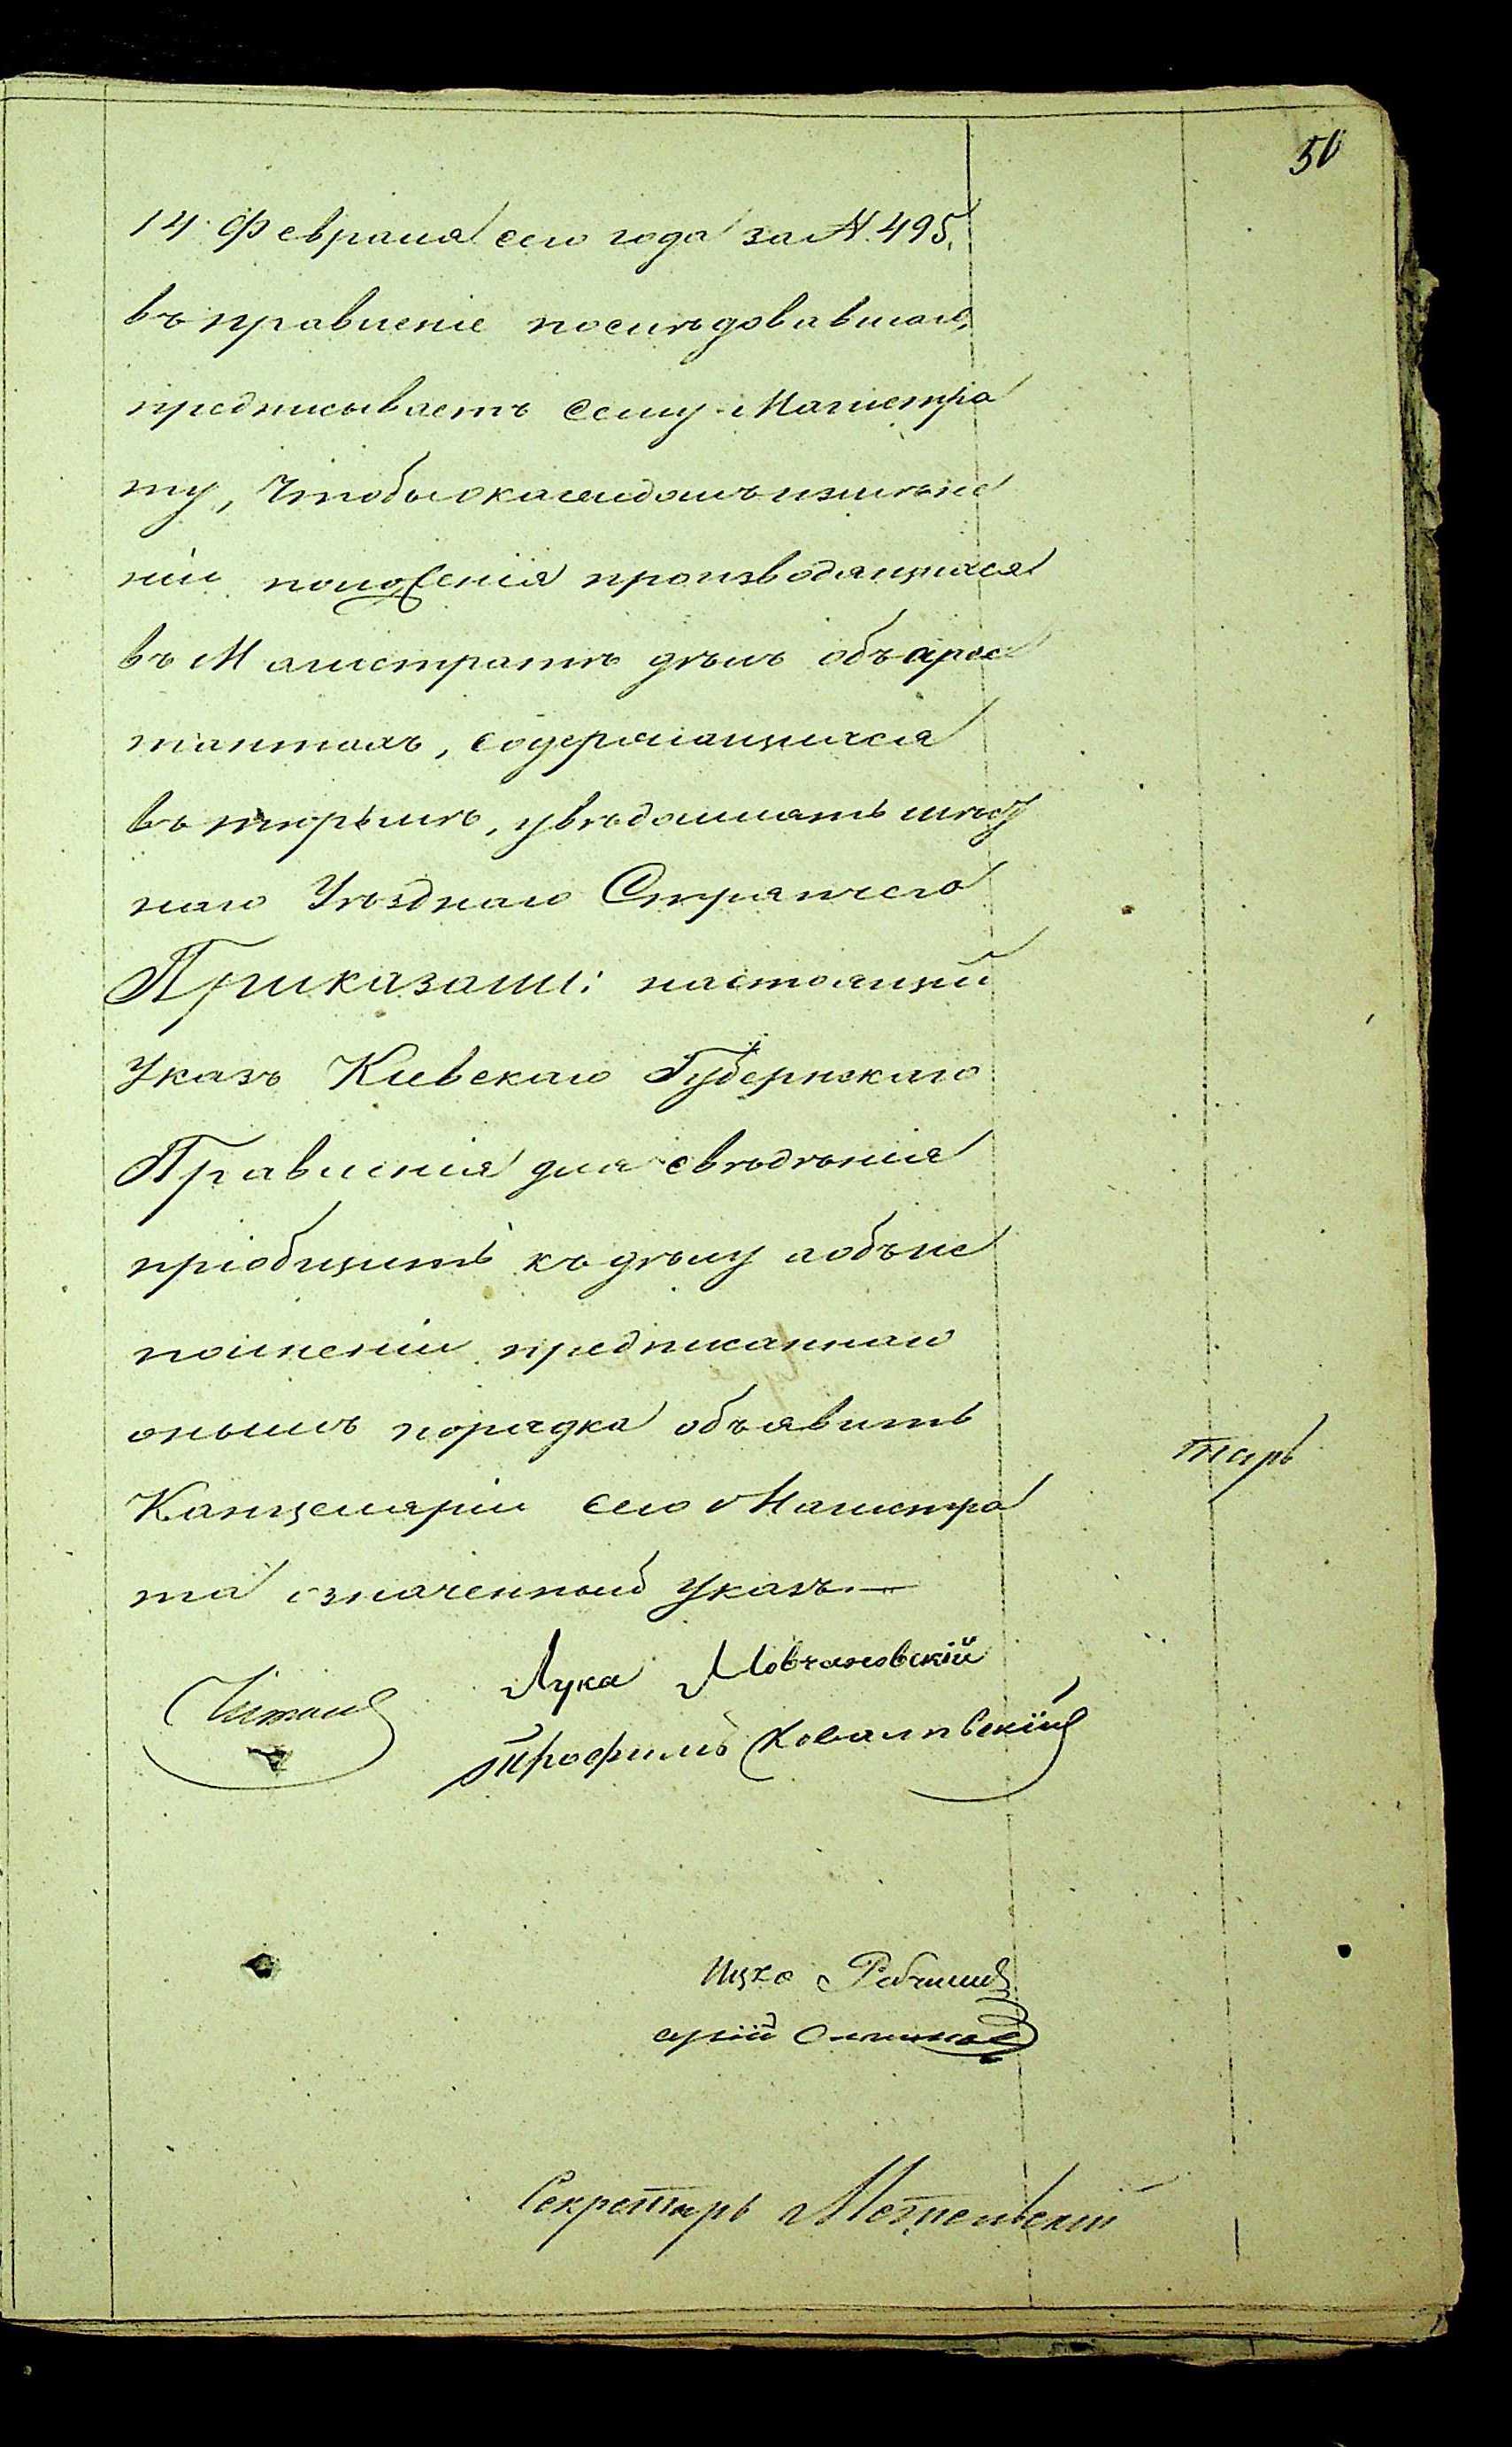 50
14 Февраля сего года за N. 495.
въ правленіе послѣдовавшаго,
предписываетъ сему Магистра
ту, Чтобы о каждомъ измѣне
ніи положенія производящихся
въ Магистратѣ дѣлъ объ арес
тантахъ, содержащихся
въ тюрьмѣ, увѣдомлять мѣст
наго Уѣзднаго Стряпчего
Приказали: настоящій
Указъ Кіевскаго Губернскаго
Правленія для свѣдѣнія
пріобщить къ дѣлу а объ ис
полненіи предписаннаго
онымъ порядка объявить
Канцеляріи сего Магистра
та означенный указъ.—
тарь
Лука Мовчановскій
Читалъ
Трофимъ Ковалевскій
Ицко
Секретарь